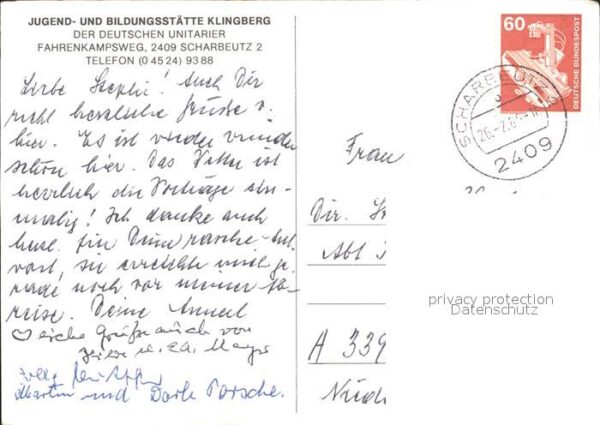 JUGEND- UND BILDUNGSSTÄTTE KLINGBERG
DER DEUTSCHEN UNITARIER
FAHRENKAMPSWEG, 2409 SCHARBEUTZ 2
TELEFON (0 45 24) 93 88
Liebe Stephi! Auch Dir
recht herzliche Grüße v.
hier. Es ist wieder wunder
schön hier. Das Wetter ist
herrlich die Vorträge ein-
malig! Ich danke auch
herzl. für Deine rasche Ant-
wort, sie erreichte mich ge-
rade noch vor meiner Ab-
reise. Deine
liche Grüße auch von
Martin und Dorle Porsche.
60
DEUTSCHE BUNDESPOST
SCHARBEUTZ 2
2409
Frau
Dir.
Abt
A 339
privacy protection
Datenschutz